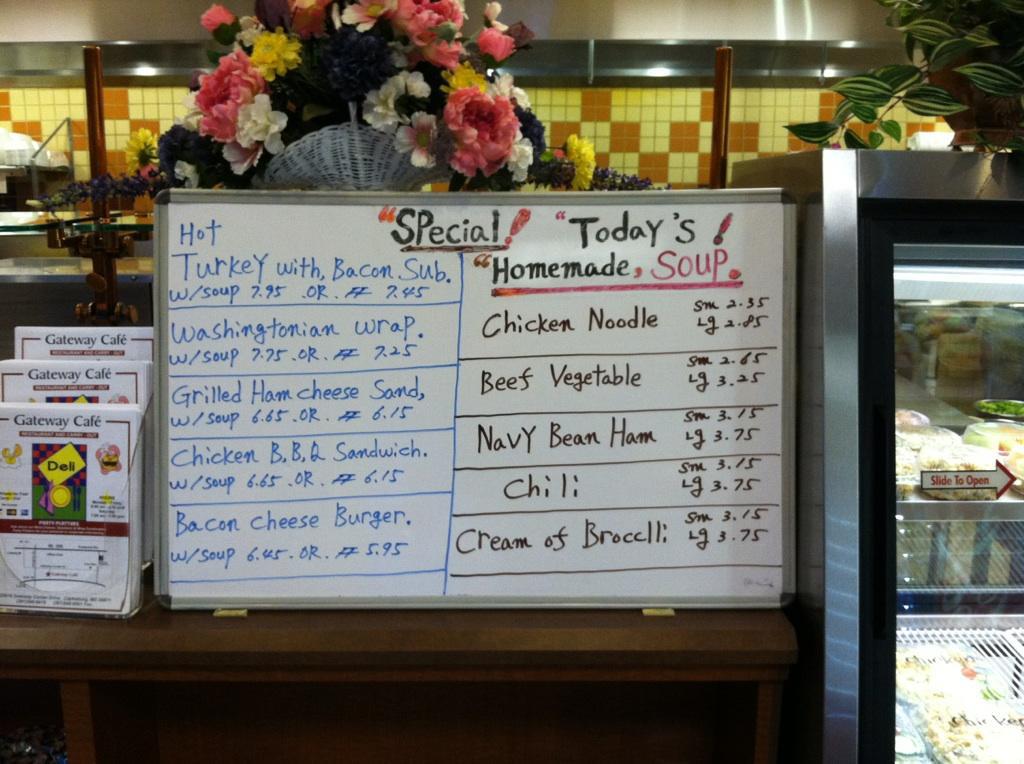 "Special! "Today's!
"Homemade, Soup.
Hot
Turkey with, Bacon Sub.
w/soup 7.95 .OR. FF 7.45
Washingtonian wrap.
w/soup 7.75 .OR. FF 7.25
Grilled Ham cheese Sand,
w/soup 6.65 .OR. FF 6.15
Chicken B,B,Q Sandwich.
w/soup 6.65 .OR. FF 6.15
Bacon cheese Burger.
w/soup 6.45 .OR. FF 5.95
Chicken Noodle Sm 2.35
Lg 2.85
Beef Vegetable Sm 2.65
Lg 3.25
Navy Bean Ham Sm 3.15
Lg 3.75
Chili Sm 3.15
Lg 3.75
Cream of Broclli Sm 3.15
Lg 3.75
Gateway Café
RESTAURANT AND CARRY - OUT
Gateway Café
RESTAURANT AND CARRY - OUT
Gateway Café
RESTAURANT AND CARRY - OUT
Deli
PARTY PLATTERS
Slide To Open
Chicken
Chicken